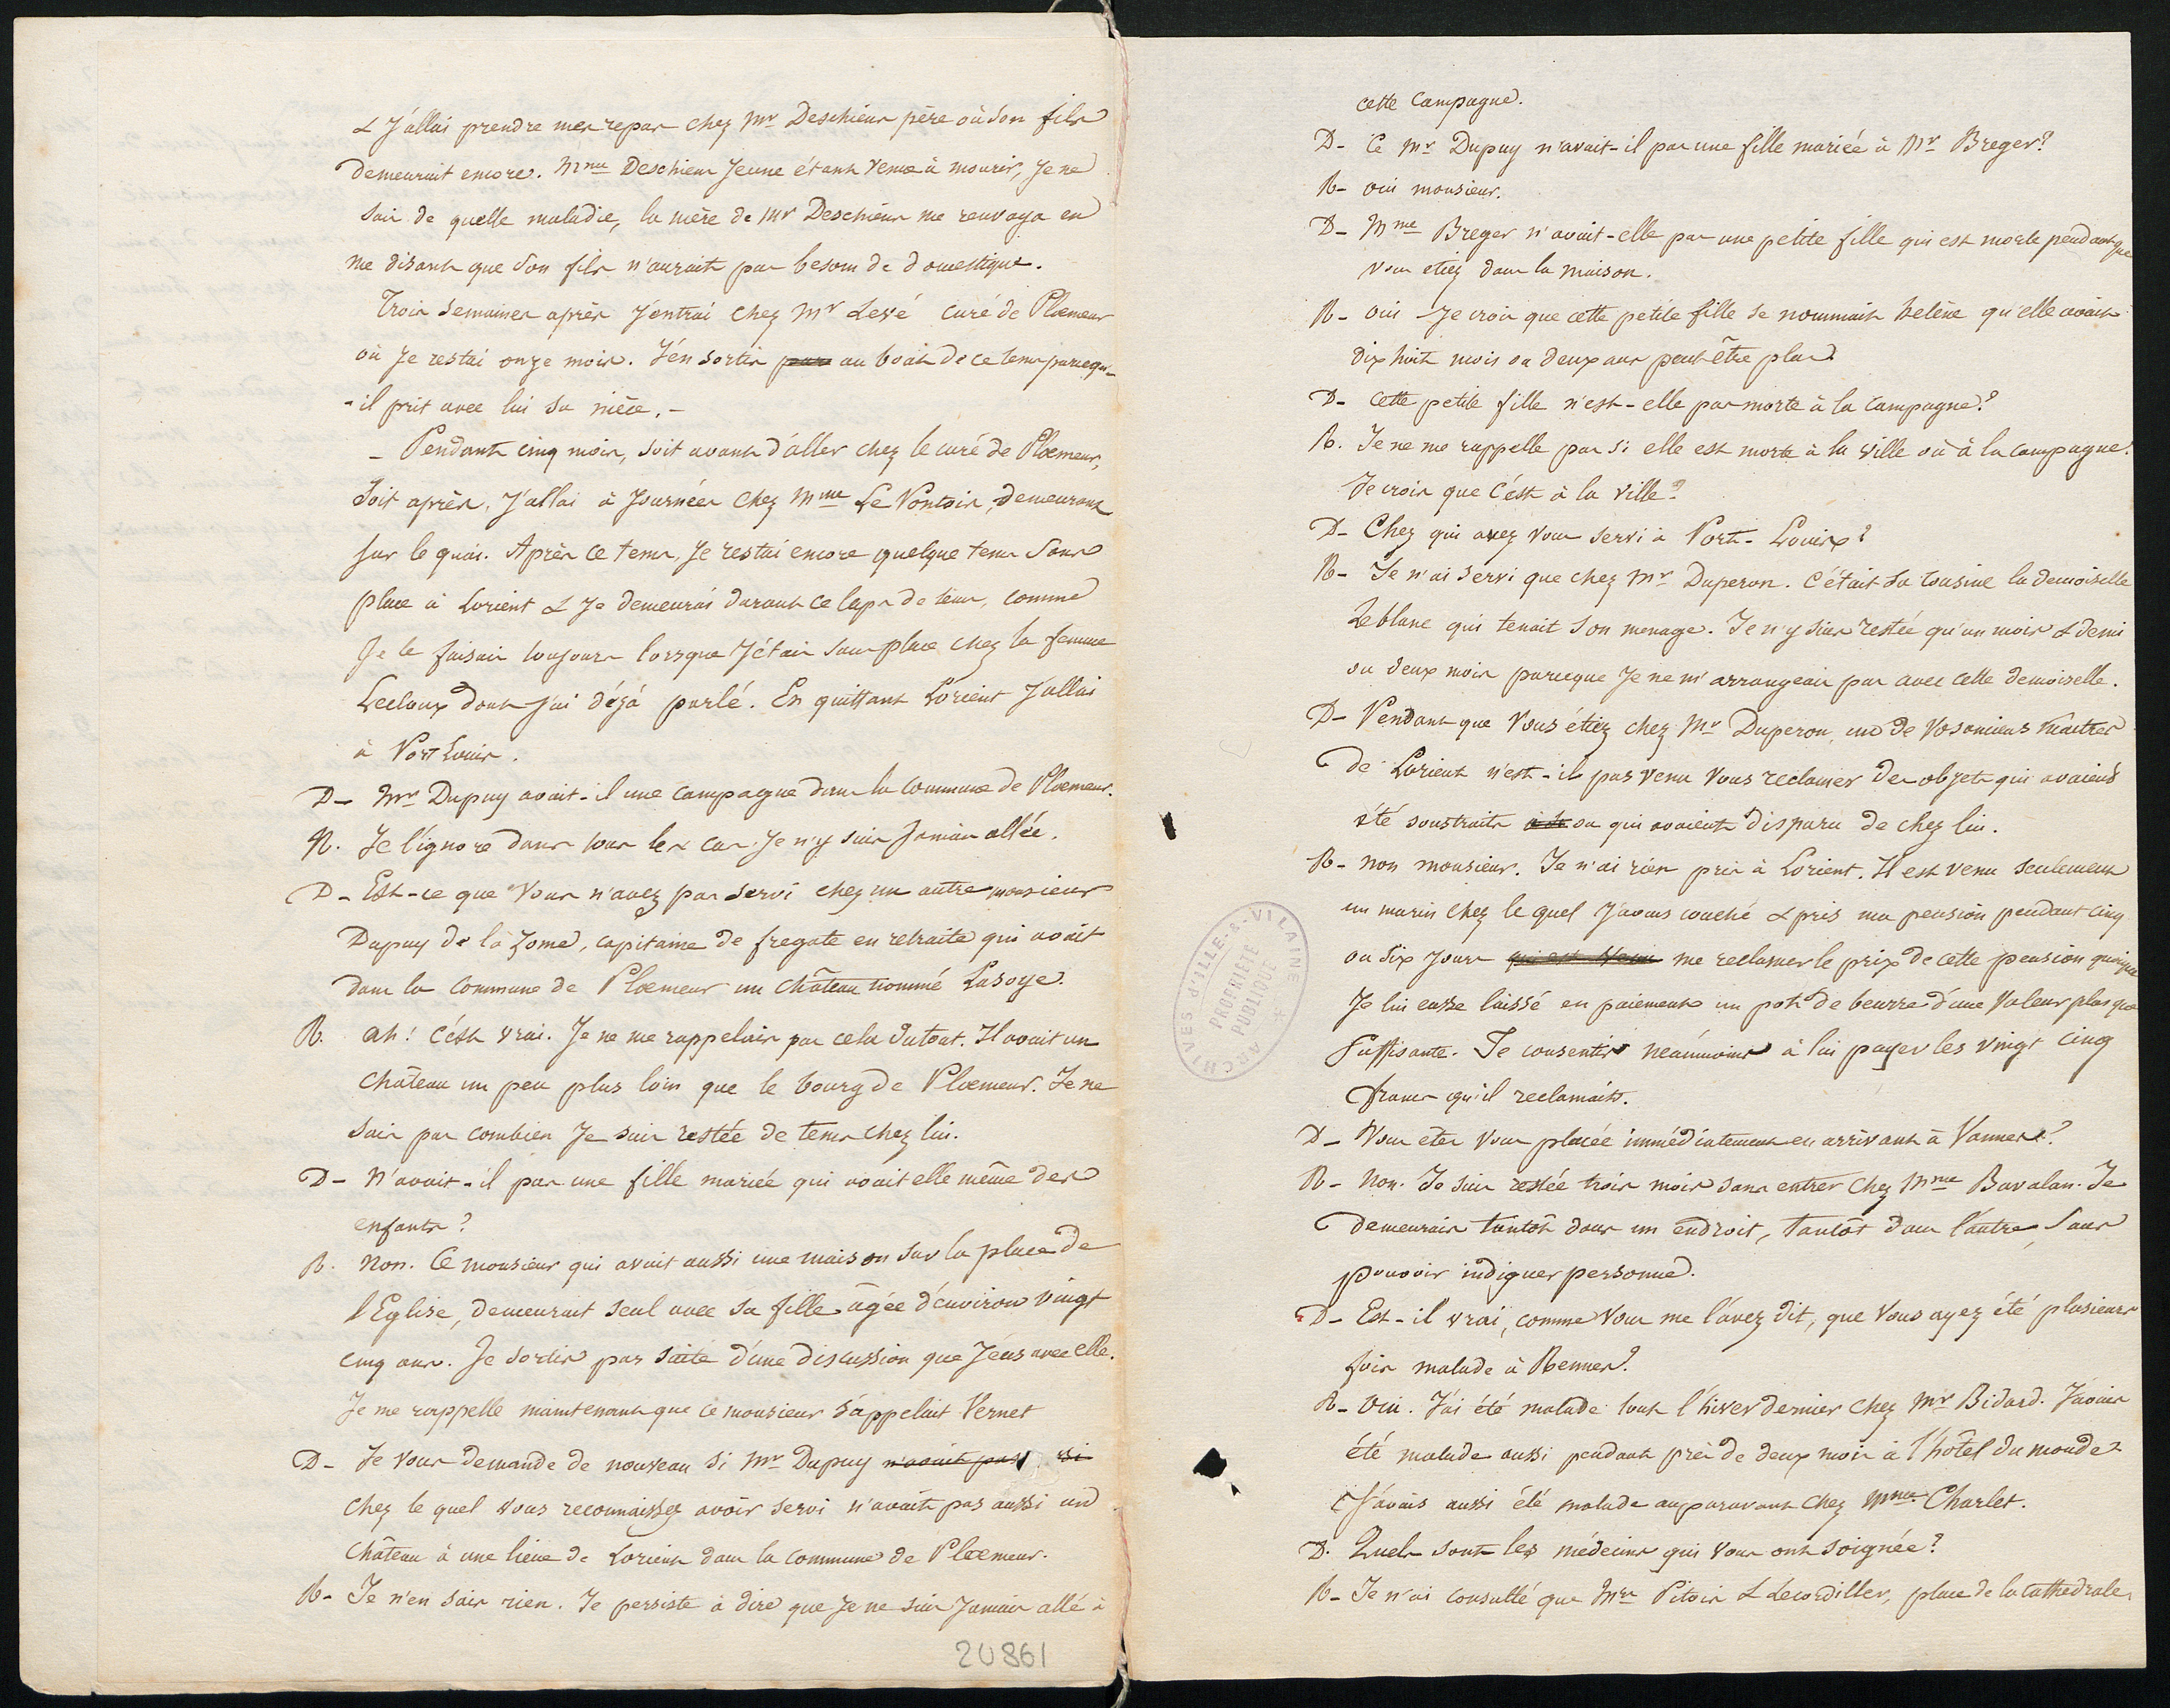 & J'allais prendre mes repas chez Mr Deschiens père où son fils
demeurait encore. Mme Deschiens Jeune étant venue à mourir, Je ne
sais de quelle maladie, la mère de Mr Deschiens me renvoya en
me disant que son fils n'aurait pas besoin de domestique.
Trois semaines après J'entrai chez Mr Levé curé de Ploemeur
où Je restai onze mois. J'en sortis au bout de ce tems parcequ-
-il prit avec lui sa nièce.-
- Pendant cinq mois, soit avant d'aller chez le curé de Ploemeur,
soit après, J'allai à Journées chez Mme Le Pontois, demeurant
sur le quai. Après ce tems, Je restai encore quelque tems sans
place à Lorient & Je demeurais durant ce laps de tems, comme
Je le faisais toujours lorsque J'étais sans place chez la femme
Lecloux dont J'ai déjà parlé. En quittant Lorient J'allai
à Port Louis.
D- Mr Dupuy avait-il une campagne dans la commune de Ploemeur.
R. Je l'ignore dans tous les cas Je n'y suis Jamais allée.
D- Est-ce que Vous n'avez pas servi chez un autre monsieur
Dupuy de la Lome, capitaine de fregate en retraite qui avait
dans la commune de Ploemeur un château nommé Lasoye.
R. ah! c'est vrai. Je ne me rappelais pas cela du tout. Il avait un
château un peu plus loin que le bourg de Ploemeur. Je ne
sais pas combien Je suis restée de tems chez lui.
D- N'avait-il pas une fille mariée qui avait elle même des
enfants?
R. Non. Ce monsieur qui avait aussi une maison sur la place de
l'Eglise, demeurait seul avec sa fille âgée d'environ vingt
cinq ans. Je sortis par suite d'une discussion que J'eus avec elle.
Je me rappelle maintenant que ce monsieur s'appelait Vernet
D- Je vous demande de nouveau si Mr Dupuy n'avait pas si
chez le quel vous reconnaissez avoir servi n'avait pas aussi un
château à une lieue de Lorient dans la commune de Ploemeur.
R- Je n'en sais rien. Je persiste à dire que Je ne suis Jamais allé à
20861
cette campagne.
D- Ce Mr Dupuy n'avait-il pas une fille mariée à Mr Breger?
R- oui monsieur.
D- Mme Breger n'avait-elle pas une petite fille qui est morte pendant que
vous etiez dans la maison.
R- oui Je crois que cette petite fille se nommait helène qu'elle avait
dix huit mois ou deux ans peut être plus.
D- Cette petite fille n'est-elle pas morte à la campagne?
R. Je ne me rappelle pas si elle est morte à la ville ou à la campagne.
Je crois que c'est à la ville?
D- Chez qui avez vous servi à Port-Louis?
R- Je n'ai servi que chez Mr Duperon. C'était sa cousine la demoiselle
Leblanc qui tenait son menage. Je n'y suis restée qu'un mois & demi
ou deux mois parceque Je ne m'arrangeais pas avec cette demoiselle.
D- Pendant que Vous étiez chez Mr Duperon, un de vos anciens maitres
de Lorient n'est-il pas venu vous reclamer des objets qui avaient
été soustraits ou qui avaient disparu de chez lui.
R- non monsieur. Je n'ai rien pris à Lorient. Il est venu seulement
un marin chez le quel J'avais couché & pris ma pension pendant cinq
ou six Jours qui est venu me reclamer le prix de cette pension quoique
Je lui eusse laissé en paiement un pot de beurre d'une valeur plus que
suffisante. Je consentis néanmoins à lui payer les vingt cinq
francs qu'il reclamait.
D- Vous êtes vous placée immédiatement en arrivant à Vannes?
R- Non. Je suis restée trois mois sans entrer chez Mme Bavalan. Je
demeurais tantôt dans un endroit, tantôt dans l'autre, sans
pouvoir indiquer personne.
D- Est-il vrai, comme vous me l'avez dit, que vous ayez été plusieurs
fois malade à Rennes?
R- Oui. J'ai été malade tout l'hiver dernier chez Mr Bidard. J'avais
été malade aussi pendant près de deux mois à l'hôtel du monde
J'avais aussi été malade auparavant chez Mme Charlet.
D. Quels sont les médecins qui vous ont soignée?
R- Je n'ai consulté que Mrs Pitois & Lecordiller, place de la cathedrale
ARCHIVES d'ILLE-&-VILAINE
PROPRIÉTÉ
PUBLIQUE